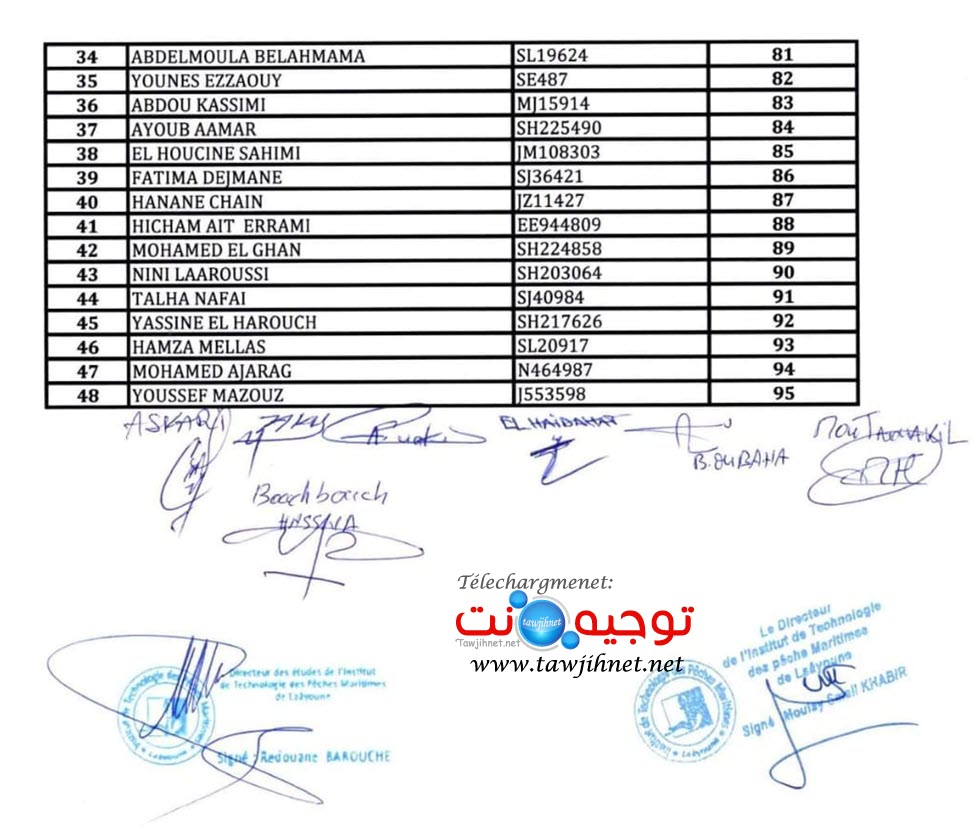 34 ABDELMOULA BELAHMAMA SL19624 81
35 YOUNES EZZAOUY SE487 82
36 ABDOU KASSIMI MJ15914 83
37 AYOUB AAMAR SH225490 84
38 EL HOUCINE SAHIMI JM108303 85
39 FATIMA DEJMANE SJ36421 86
40 HANANE CHAIN JZ11427 87
41 HICHAM AIT ERRAMI EE944809 88
42 MOHAMED EL GHAN SH224858 89
43 NINI LAAROUSSI SH203064 90
44 TALHA NAFAI SJ40984 91
45 YASSINE EL HAROUCH SH217626 92
46 HAMZA MELLAS SL20917 93
47 MOHAMED AJARAG N464987 94
48 YOUSSEF MAZOUZ J553598 95
ASKARI
EL HAIDAHAT
B.OUBAHA
Bouchbouch
Télechargmenet:
توجيه نت
tawjihnet
Tawjihnet.net
www.tawjihnet.net
Directeur des études de l'Institut
de Technologie des Pêches Maritimes
de Laâyoune
Signé : Redouane BAROUCHE
Le Directeur
de l'Institut de Technologie
des pêche Maritimes
de Laâyoune
Signé Moulay KHABIR
Institut de Technologie des Pêches Maritimes
Laâyoune